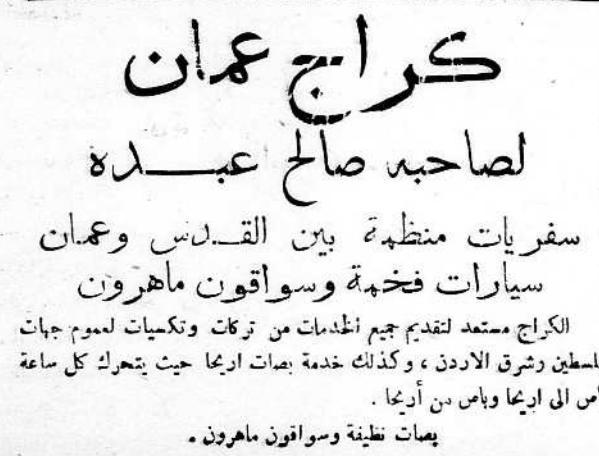 كراج عمان
لصاحبه صالح عبده
سفريات منظمة بين القدس وعمان
سيارات فخمة وسواقون ماهرون
الكراج مستعد لتقديم جميع الخدمات من تركات وتكسيات لعموم جهات
لسطين وشرق الاردن ، وكذلك خدمة بصات اريحا حيث يتحرك كل ساعة
اص الى اريحا وباص من أريحا .
بصات نظيفة وسواقون ماهرون .